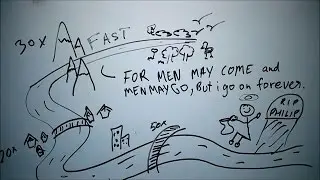 30x
FAST
FOR MEN MAY COME and
MEN MAY GO, But i go on forever.
20x
50x
RIP
PHILIP